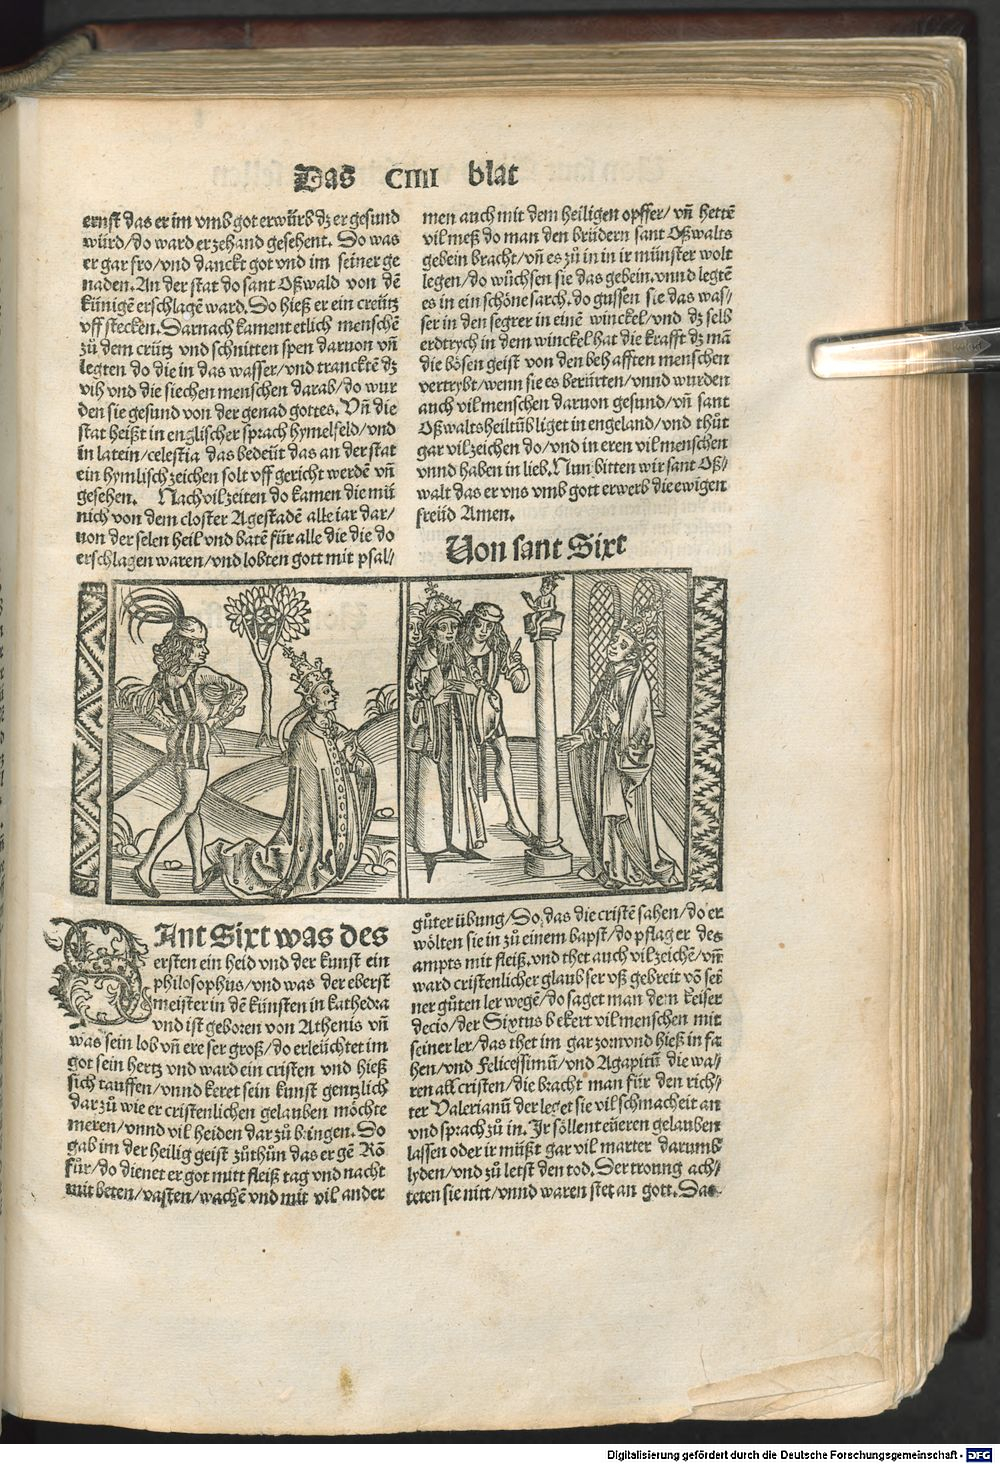 Das CIIII blat
ernst das er im vmb got erwürb dz er gesund
würd/do ward er zehand gesehent. So was
er gar fro/vnd danckt got vnd im seiner ge
naden. An der stat do sant Oßwald von dē
künigē erschlagē ward. So hieß er ein creütz
vff stecken. Darnach kament etlich menschē
zů dem crütz vnd schnitten spen daruon vñ
legten do die in das wasser/vnd trancktē dz
vih vnd die siechen menschen darab/do wur
den sie gesund von der genad gottes. Vñ die
stat heißt in englischer sprach hymelfeld/vnd
in latein/celestia das bedeüt das an der stat
ein hymlisch zeichen solt vff gericht werdē vñ
gesehen. Nach vil zeiten do kamen die mü
nich von dem closter Agestadē alle iar dar/
uon der selen heil vnd batē für alle die die do
erschlagen waren/vnd lobten gott mit psal/
men auch mit dem heiligen opffer/vñ hettē
vil meß do man den brüdern sant Oßwalts
gebein bracht/vñ es zů in in ir münster wolt
legen/do wůchsen sie das gebein. vnnd legtē
es in ein schöne sarch. do gussen sie das was/
ser in den segrer in einē winckel/vnd dz selb
erdtrych in dem winckel hat die krafft dz mā
die bösen geist von den behafften menschen
vertrybt/wenn sie es berürten/vnnd wurden
auch vil menschen daruon gesund/vñ sant
Oßwalts heiltūb liget in engeland/vnd thůt
gar vil zeichen do/vnd in eren vil menschen
vnnd haben in lieb. Nun bitten wir sant Oß/
walt das er vns vmb gott erwerb die ewigen
freüd Amen.
Von sant Sixt
SAnt Sixt was des
ersten ein heid vnd der kunst ein
philosophus/vnd was der eberst
meister in dē künsten in kathedra
vnd ist geboren von Athenis vñ
was sein lob vñ ere ser groß/do erleüchtet im
got sein hertz vnd ward ein cristen vnd hieß
sich tauffen/vnnd keret sein kunst gentzlich
dar zů wie er cristenlichen gelauben möchte
meren/vnnd vil heiden dar zů bringen. So
gab im der heilig geist zůthün das er gē Rō
fůr/do dienet er got mitt fleiß tag vnd nacht
mit beten/vasten/wachē vnd mit vil ander
gůter übung/So das die cristē sahen/do er
wölten sie in zů einem bapst/do pflag er des
ampts mit fleiß. vnd thet auch vil zeichē/vñ
ward cristenlicher glaub ser vß gebreit vō sei
ner gůten ler wegē/do saget man dem keiser
decio/der Sixtus bekert vil menschen mit
seiner ler/das thet im gar zorn vnd hieß in fa
hen/vnd Felicessimū/vnd Agapitū die wa/
ren all cristen/die bracht man für den rich/
ter Valerianū der leget sie vil schmacheit an
vnd sprach zů in. Ir söllent eüeren gelauben
lassen oder ir müßt gar vil marter darumb
lyden/vnd zů letst den tod. Der troung ach/
teten sie nitt/vnnd waren stet an gott. Das
Digitalisierung gefördert durch die Deutsche Forschungsgemeinschaft - DFG